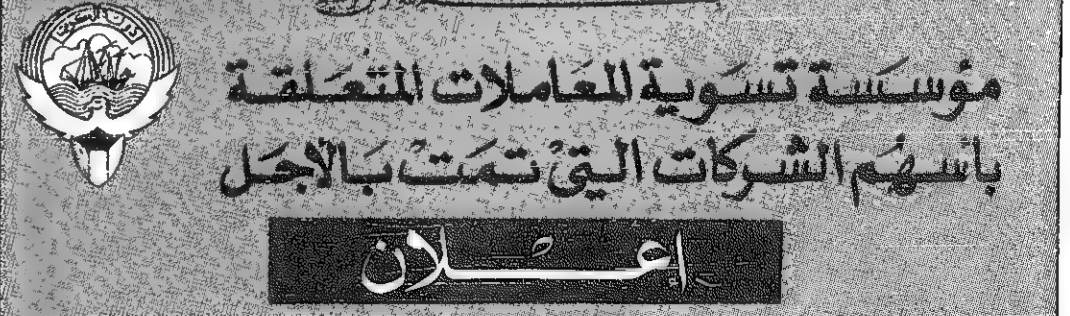 مؤسسة تسوية المعاملات المتعلقة
باسهم الشركات التي تمت بالأجل
إعلان